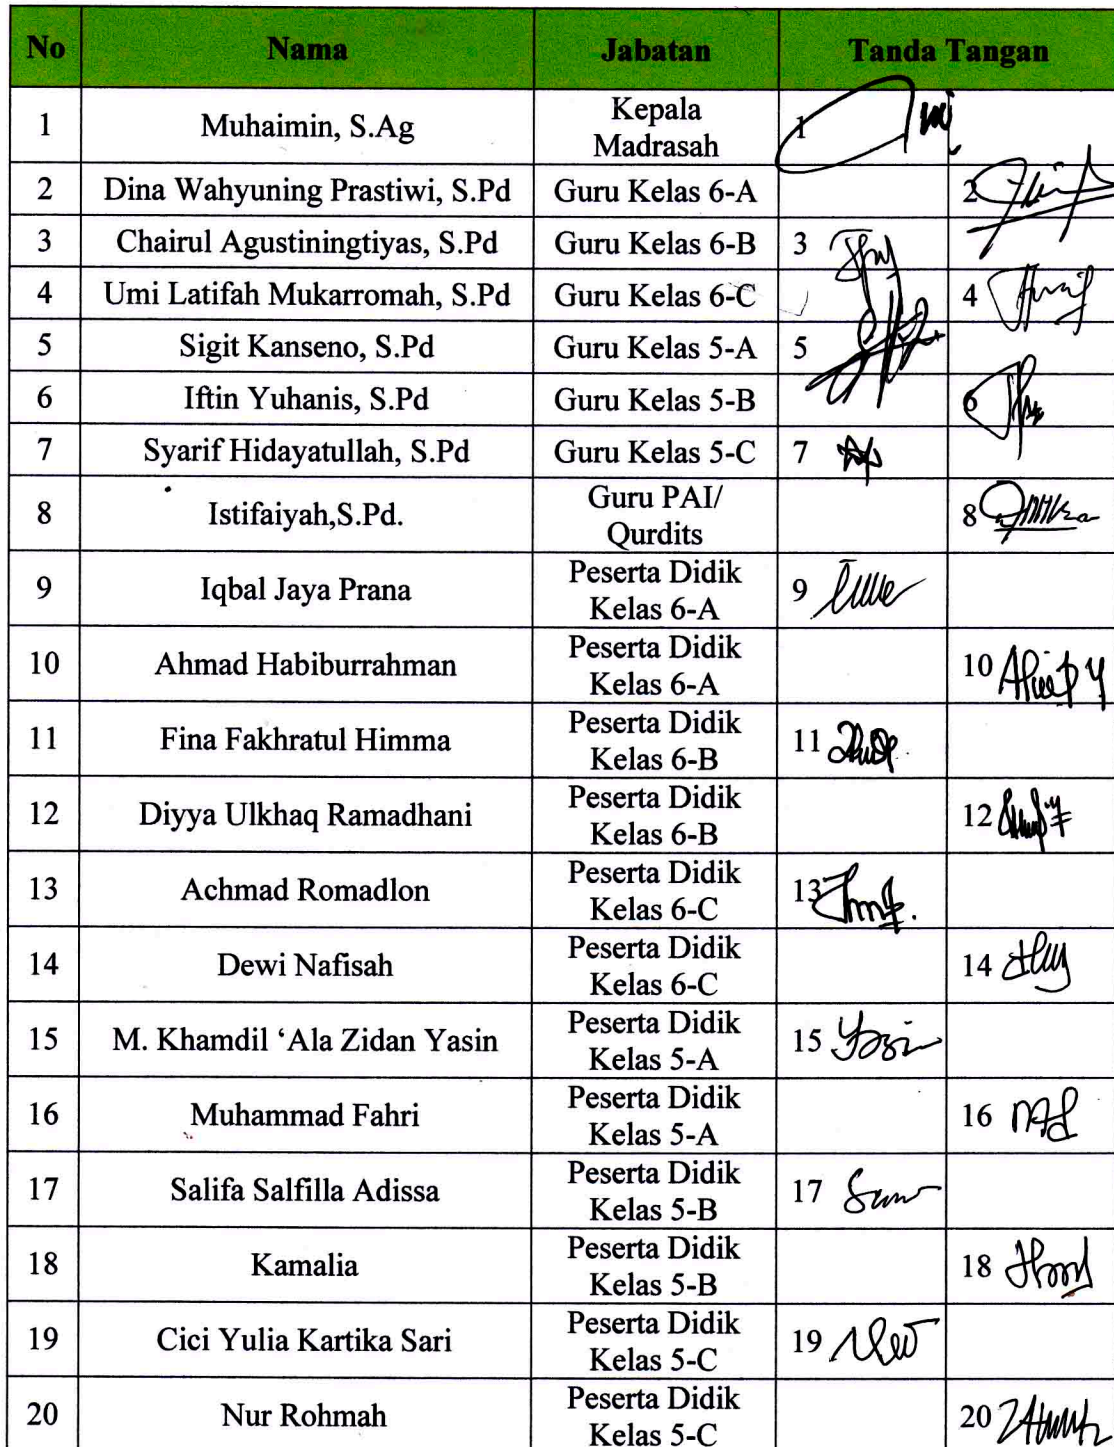 No Nama Jabatan Tanda Tangan
1 Muhaimin, S.Ag Kepala Madrasah 1
2 Dina Wahyuning Prastiwi, S.Pd Guru Kelas 6-A 2
3 Chairul Agustiningtiyas, S.Pd Guru Kelas 6-B 3
4 Umi Latifah Mukarromah, S.Pd Guru Kelas 6-C 4
5 Sigit Kanseno, S.Pd Guru Kelas 5-A 5
6 Iftin Yuhanis, S.Pd Guru Kelas 5-B 6
7 Syarif Hidayatullah, S.Pd Guru Kelas 5-C 7
8 Istifaiyah,S.Pd. Guru PAI/ Qurdits 8
9 Iqbal Jaya Prana Peserta Didik Kelas 6-A 9
10 Ahmad Habiburrahman Peserta Didik Kelas 6-A 10
11 Fina Fakhratul Himma Peserta Didik Kelas 6-B 11
12 Diyya Ulkhaq Ramadhani Peserta Didik Kelas 6-B 12
13 Achmad Romadlon Peserta Didik Kelas 6-C 13
14 Dewi Nafisah Peserta Didik Kelas 6-C 14
15 M. Khamdil ‘Ala Zidan Yasin Peserta Didik Kelas 5-A 15
16 Muhammad Fahri Peserta Didik Kelas 5-A 16
17 Salifa Salfilla Adissa Peserta Didik Kelas 5-B 17
18 Kamalia Peserta Didik Kelas 5-B 18
19 Cici Yulia Kartika Sari Peserta Didik Kelas 5-C 19
20 Nur Rohmah Peserta Didik Kelas 5-C 20